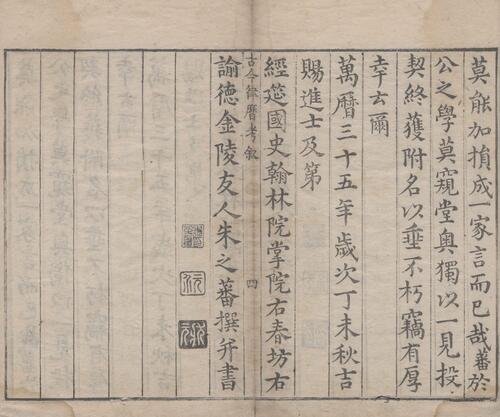 莫能加損成一家言而已哉蕃於
公之學莫窺堂奥獨以一見投
契終獲附名以垂不朽竊有厚
幸云爾
萬曆三十五年歲次丁未秋吉
賜進士及第
經筵國史翰林院掌院右春坊右
古今律曆考敘 四
諭德金陵友人朱之蕃撰并書